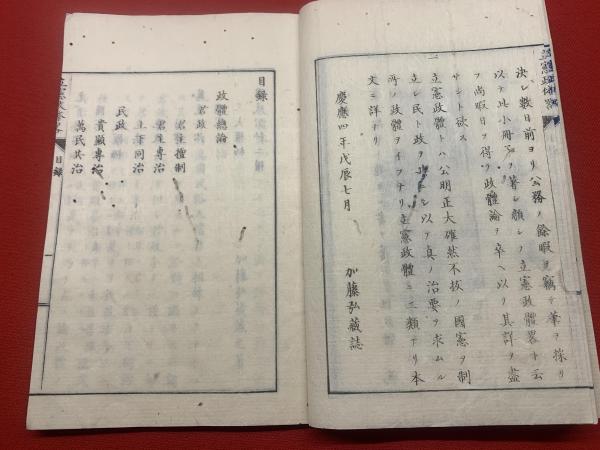 立憲政體畧
決シ數日前ヨリ公務ノ餘暇ヲ竊テ筆ヲ採リ
以テ此小冊ヲ著シ顔シテ立憲政體畧ト云
フ尚暇日ヲ得テ政體論ヲ卒ヘ以テ其詳ヲ盡
サント欲ス
一立憲政體トハ公明正大確然不抜ノ國憲ヲ制
立シ民ト政ヲ以テ真ノ治要ヲ求ムル
所ノ政體ヲイフナリ立憲政體ニ二類アリ本
文ニ詳ナリ
慶應四年戊辰七月
加藤弘藏誌
目録
政體總論
君政
君主擅制
君主專治
上下同治
民政
貴顯專治
萬民共治
目録
一